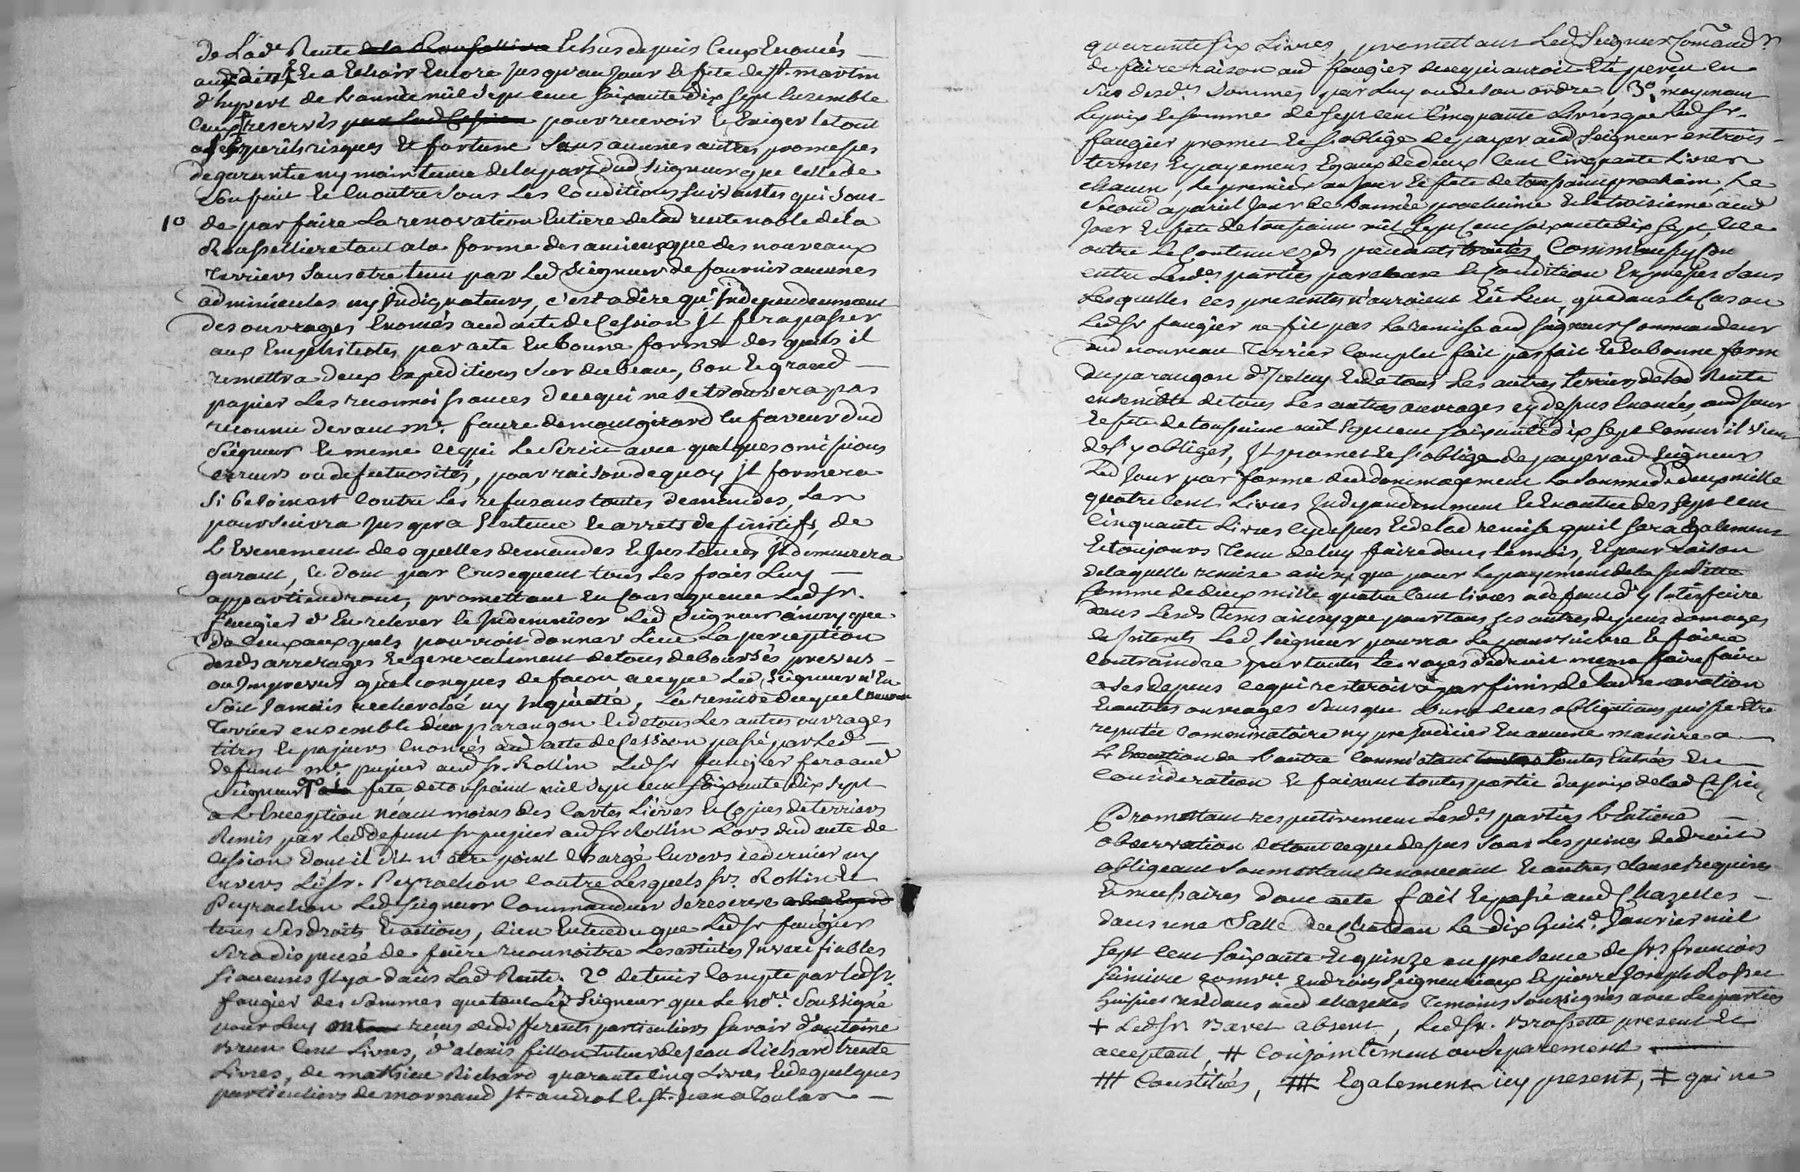 de Lad.e Rente de la Roussilliere Echus depuis Ceux Enoncés
aud acte Et a Echoir Encore jusqu'au Jour Et fete de St. martin
d'hyvert de L'année mil Sept cent soixante dix sept Ensemble
Ceux reservés par Lad Cession pour recevoir Et Exiger le tout
a ses perils risques Et fortune Sans aucunes autres promesses
de garantie ny maintenue de la part dud Seigneur que celle de
Son fait Et Enoutre sous Les Conditions suivantes qui sont
1o de parfaire La renovation Entiere delad rente noble de la
Roussilliere tant a la forme des anciens que des nouveaux
terriers Sans etre tenu par Led Seigneur de fournir aucunes
adminicules ny Indiquateurs, c'est a dire qu'Independemment
des ouvrages Enoncés aud acte de Cession Il fera passer
aux Emphiteotes par acte En bonne forme des quels il
remettra deux Expeditions Sur du beau, bon Et grand
papier Les reconnoissances de ce qui ne se trouvera pas
reconnu devant me. faure de montgirard En faveur dud
Seigneur Et meme ce qui Le Seroit avec quelques omissions
erreurs ou defectuosités, pour raison de quoy Il formera
Si besoin est Contre Les refusans toutes demandes, Les
poursuivra jusqu'a Sentence Et arrets definitifs, de
L'Evenement des quelles demandes Et Instances Il demeurera
garant, Et dont par Consequent tous Les frais Luy
appartiendront, promettant En Consequence Led Sr.
faugier d'En relever Et Indemniser Led Seigneur ainsy que
de Ceux auxquels pourroit donner Lieu La perception
desds arrerages Et generalement de tous deboursés prevus
ou Imprevus quelconques de façon a ce que Led Seigneur n'En
Soit Jamais recherché ny Inquietté, La remise duquel nouveau
Terrier ensemble d'un parangon Et de tous Les autres ouvrages
titres Et papiers Enoncés aud acte de Cession passé par Led
defunt me. pupier aud Sr. Rollin Led Sr faugier fera aud
Seigneur a la fete de toussaint mil Sept cent soixante dix sept
a L'Exception néant moins des Cartes Lieves Et Copies de terriers
Remis par Led defunt Sr pupier aud Sr Rollin Lors dud acte de
cession dont il dit n'etre point Chargé Envers ce dernier ny
Envers Led Sr. Peyrachon Contre Lesquels Srs. Rollin Et
Peyrachon Led Seigneur Commandeur se reserve
tous Ses droits Et actions, bien Entendu que Led Sr faugier
Sera dispensé de faire reconnoitre Les articles Invarifiables
Si aucuns Il y a dans Lad Rente. 2o de tenir Compte par led Sr.
faugier des Sommes que tant Led Seigneur que Le nore. Soussigné
pour Luy ont reçus de differents particuliers Savoir d'antoine
Brun Cent Livres, d'alexis fillon tuteur de Jean Richard trente
Livres, de mathieu Richard quarante cinq Livres Et de quelques
particuliers de mornand St. andéol Et St. Jean a Toulas
quarante six Livres, promettant Led Seigneur Comand.r
de faire raison aud faugier de ce qui auroit Eté perçu en
Sus desds. Sommes par Luy ou de son ordre, 3o. moyenant
Le prix Et somme de Sept cent Cinquante Livres que Led Sr.
faugier promet Et s'oblige de payer aud Seigneur en trois
termes Et payemens Egaux de deux Cent Cinquante Livres
chacun, Le premier au jour Et fete de toussaint prochain, Le
Second a pareil Jour de L'année prochaine Et Le troisieme aud
Jour Et fete de toussaint mil Sept cent soixante dix sept, Et Ce
outre Le Contenu es ds precedents traités, Comme aussy Son
entre Lesdes. parties Et Condition Expresses Sans
Lesquelles ces presentes n'auroient Eté Lieu, que dans le Cas ou
Led Sr faugier ne fit pas La remise aud Seigneur Commandeur
dud nouveau Terrier Complet fait parfait Et En bonne forme
du parangon d'Iceluy Et de tous Les autres terriers delad Rente
ensemble de tous Les autres ouvrages cy dessus Enoncés, aud jour
Et fete de toussaint mil Sept cent soixante dix sept Comme il vient
de s'y obliger, Il promet Et s'oblige de payer aud Seigneur
Led Jour par forme de dedommagement La Somme de deux mille
quatre cent Livres Independemment Et Enoutre des Sept Cent
Cinquante Livres Cy dessus Et de lad remise qu'il Sera Egalement
Et toujours Tenu de luy faire dans Le mois, Et pour raison
de laquelle remise ainsy que pour Le payement de la susditte
Somme de deux mille quatre Cent livres a defaut d'y satisfaire
dans Lesds tems ainsy que pour tous ses autres depens domages
Et Interets Led Seigneur pourra Le poursuivre Et faire
Contraindre par toutes Les voyes de droit meme faire faire
a Ses depens ce qui resteroit a parfinir de Lad renovation
Et autres ouvrages Sans que L'une de ces obligations puisse etre
reputée Comminatoire ny prejudicier En aucune maniere a
L'Execution de L'autre Comme etant toutes Entrées En
Consideration Et faisant toutes partie du prix de lad Cession
Promettant respectivement Lesdes. parties L'Entiere
observation de tout ce que dessus Sous Les peines de droit
obligeant Soumettant renonceant Et autres Clauses requises
Et necessaires dont acte fait Et passé aud Chazelles
dans une Salle du Chateau Le dix huite. Janvier mil
Sept Cent soixante Et quinze en presence de Sr. françois
Comre. En droits Seigneuriaux Et pierre Joseph Rosset
huissier residans aud chazelles Temoins Soussignés avec Les parties
+ Led Sr Bavet absent, Led Sr. Brossette present Et
acceptant, # Conjointement ou Separement
Constitués, Egalement icy present, ‡ qui ne